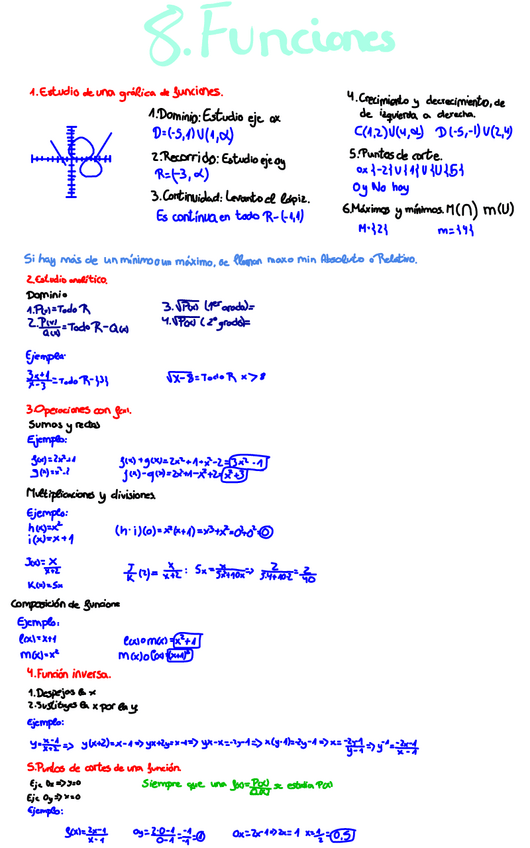 8. Funciones
1. Estudio de una gráfica de funciones.
1. Dominio: Estudio eje ox
D=(-5,1)U(1,∝)
2. Recorrido: Estudio eje oy
R=(-3,∝)
3. Continuidad: Levanto el lápiz.
Es contínua en todo R-(-1,1)
4. Crecimiento y decrecimiento, de
de izquierda a derecha.
C(1,2)U(4,∝) D(-5,-1)U(2,4)
5. Puntos de corte.
ox{-2}U{1}U{
Oy No hay
6. Máximos y mínimos. M(∩) m(U)
M={2} m={4}
Si hay más de un mínimo o un máximo, se llaman max o min Absoluto o Relativo.
2. Estudio analítico.
Dominio
1. P(x)=Todo R
2. P(x)/Q(x)=Todo R-Q(x)
3. √P(x) (1er grado)=
4. √P(x) (2º grado)=
Ejemplo:
3x+1/x-3=Todo R-{3}
√x-8=Todo R x>8
3. Operaciones con f(x).
Sumas y restas
Ejemplo:
f(x)=2x²+1
g(x)=x²-2
f(x)+g(x)=2x²+1+x²-2=3x²-1
f(x)-g(x)=2x²+1-x²+2=x²+3
Multiplicaciones y divisiones.
Ejemplo:
h(x)=x²
i(x)=x+1
(h·i)(0)=x²(x+1)=x³+x²=0³+0²=0
J(x)=x/x+2
K(x)=5x
J/K(2)=x/x+2 : 5x=x/5x²+10x=>
Composición de funcione
Ejemplo:
l(x)=x+1
m(x)=x²
l(x)om(x)=x²+1
m(x)ol(x)=(x+1)²
4. Función inversa.
1. Despejas la x
2. Sustituyes la x por la y.
Ejemplo:
y=x-1/x+2=> y(x+2)=x-1=> yx+2y=x-1=> yx-x=-2y-1=> x(y-1)=-2y-1=> x=-2y-1/y-1=> y⁻¹=-2x-1/x-1
5. Puntos de cortes de una función.
Eje Ox=>y=0
Eje Oy=>x=0
Siempre que una f(x)=P(x)/Q(x) se estudia P(x)
Ejemplo:
f(x)=2x-1/x-1
oy=2·0-1/0-1=-1/-1=1
Ox=2x-1=>2x=1 x=1/2=0,5